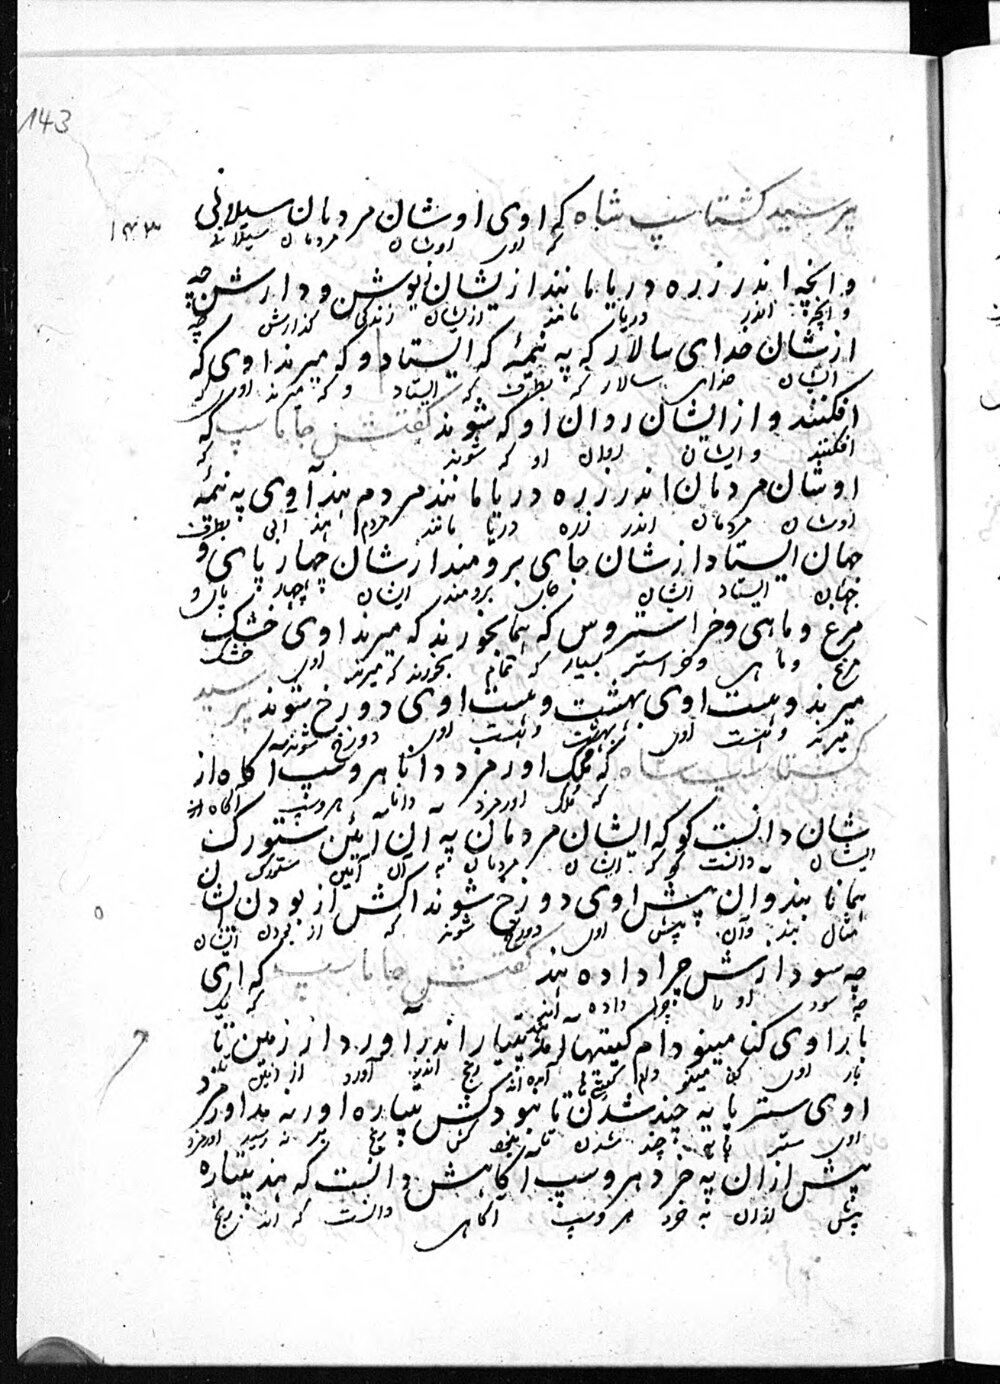 143
۱۴۳
پرسید کشتاسپ شاه که اوی اوشان مردمان سیلانی
که اوی اوشان مردمان سیلانی
و انچه اندر زره دریا مانند ازیشان زیوش و دارش چه
و انچه اندر دریا مانند ازیشان زندگی گذارش چه
ازشان خدای سالار که په نیمهٔ که ایستاد و که میرند اوی که
ایشان خدای سالار که بطرف که ایستاد و که میرند اوی که
افکنند و از ایشان روان او که شوند گفتش جاماسپ که
افکنند و ایشان روان او که شوند که
اوشان مردمان اندر زره دریا مانند مردم هند آوی په نیمهٔ
اوشان مردمان اندر زره دریا مانند مردم هند آبی بطرف
جهان ایستاد ازشان جای برومند ازشان چهار پای و
جهان ایستاد ایشان جای برومند ایشان چهار پای و
مرغ و ماهی و خراستر وس که همابخورند که میرند اوی خشک
مرغ و ماهی و خراستر بسیار که تمام بخورند که میرند اوی خشک
میرند و هست اوی بهشت و هست اوی دوزخ شوند پرسید
میرند و هست اوی بهشت و هست اوی دوزخ شوند
کشتاسپ شاه که ملک اورمزد دانا هروسپ آگاه از
که ملک اورمزد دانا هروسپ آگاه از
شان دانست کو که ایشان مردمان په آن آئین ستورک
ایشان دانست کو که ایشان مردمان به آن آئین ستورک
همانا بند و آن پیش اوی دوزخ شوند اکش از بودن اشان
مثال بند و آن پیش اوی دوزخ شوند که از بودن ایشان
چه سود ازش چرا داده هند گفتش جاماسپ که ای
چه سود او را چرا داده اند که یک
بار اوی کنا مینو دام کیتیها پتیار اندر آورد از زمین تا
بار اوی کنا مینو دام رنج اندر آورد از زمین تا
اوی ستر پا یه چند شدن تا نبود کش پتیاره اور نه مد اورمزد
اوی ستر پایه چند شدن تا نبود کش رنج بر نه رسید اورمزد
پیش ازان په خرد هروسپ آگاهش دانست که هند پتیاره
پیش ازان به خرد هروسپ آگاهی دانست که اند رنج